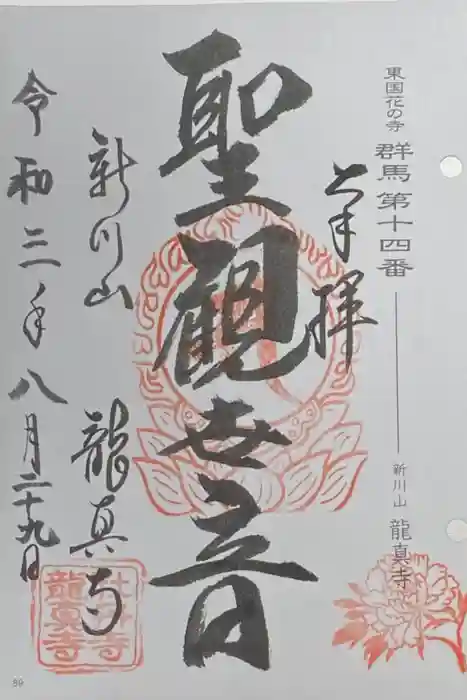 東国花の寺 群馬第十四番 新川山 龍真寺
奉拝
聖観世音
新川山 龍真寺
令和三年八月二十九日
龍真寺
89